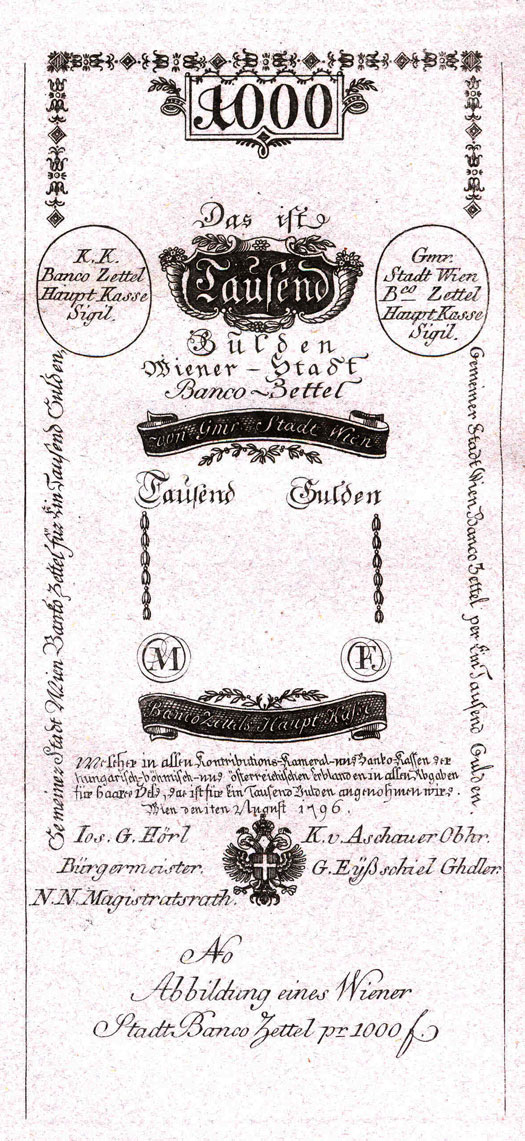 1000
Das ist
Tausend
K. K.
Banco Zettel
Haupt Kasse
Sigil.
Gmr.
Stadt Wien
Bco Zettel
Haupt Kasse
Sigil.
Gulden
Wiener - Stadt
Banco - Zettel
von Gmr Stadt Wien
Tausend Gulden
Gemeiner Stadt Wien Banko Zettel für Ein Tausend Gulden,
Gemeiner Stadt Wien Banco Zettel per Ein Tausend Gulden.
M F.
Banco Zettels Haupt Kasse
Welcher in allen Kontributions-Kameral-und Banko-Kassen der
hungarisch-böhmisch-und österreichischen Erblanden in allen Abgaben
für baares Geld, das ist für Ein Tausend Gulden angenohmen wird.
Wien den 1ten August 1796.
Ios. G. Hörl K. v. Aschauer Obhr.
Bürgermeister. G. Eÿßschiel Ghdler.
N. N. Magistratsrath.
No
Abbildung eines Wiener
Stadt Banco Zettel pr 1000 f.